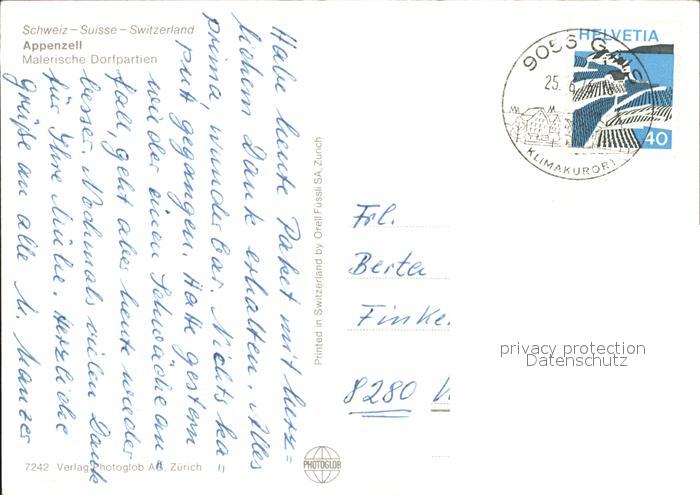 Schweiz – Suisse – Switzerland
Appenzell
Malerische Dorfpartien
Habe heute Paket mit herz=
lichem Dank erhalten. Alles
prima, wunderbar. Nichts ka=
putt gegangen. Hatte gestern
wieder einen Schwächean=
fall, geht aber heute wieder
besser. Nochmals vielen Dank
für Ihre Mühe. Herzliche
Grüße an alle M. Manzer
Printed in Switzerland by Orell Füssli SA, Zurich
HELVETIA
40
9056 GAIS
25. 6.
KLIMAKURORT
Frl.
Berta
Finke
8280
privacy protection
Datenschutz
PHOTOGLOB
7242 Verlag Photoglob AG, Zürich